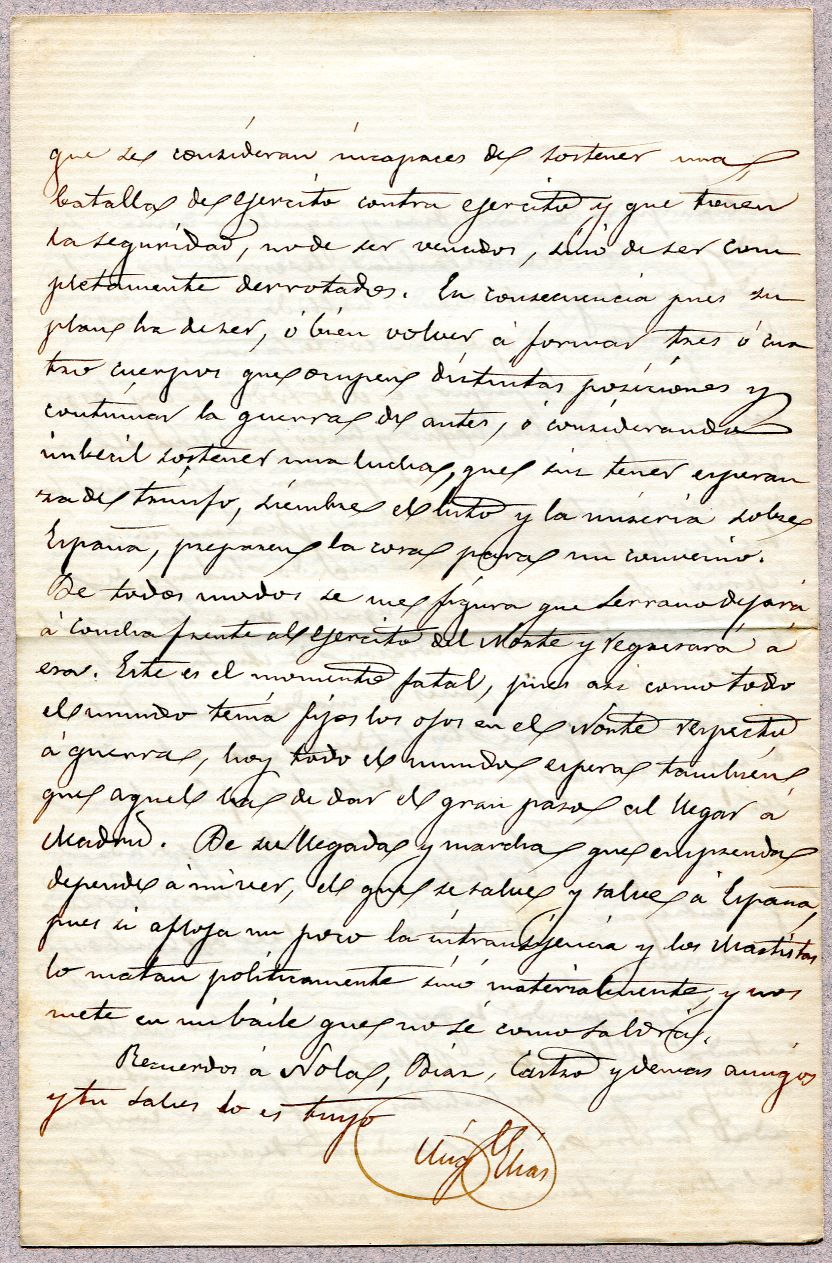 que se consideran incapaces de sostener una
batalla de ejercito contra ejercito y que tienen
la seguridad, no de ser vencidos, sinó de ser com
pletamente derrotados. En consecuencia pues su
plan ha de ser, ó bien volver á formar tres ó cua
tro cuerpos que ocupen distintas posiciones y
continuar la guerra de antes, ó considerando
imbecil sostener una lucha, que sin tener esperan
za de triunfo, siembre el luto y la miseria sobre
España, preparen la cosa para un convenio.
De todos modos se me figura que Serrano dejará
á Concha frente al ejercito del Norte y regresará á
esa. Este es el momento fatal, pues asi como todo
el mundo tenia fijos los ojos en el Norte respecto
á guerra, hoy todo el mundo espera tambien
que aquel ha de dar el gran paso al llegar á
Madrid. De su llegada y marcha que emprenda
depende á mi ver, el que se salve y salve á España,
pues si afloja un poco la intransigencia y los
lo matan politicamente sinó materialmente, y nos
mete en un baile que no sé como saldrá.
Recuerdos á Nola, Diaz, Castro y demas amigos
y tu sabes lo es tuyo
Elias